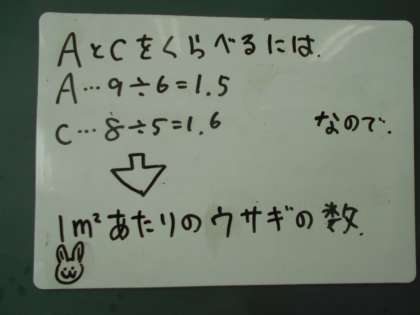 AとCをくらべるには.
A…9÷6=1.5
C…8÷5=1.6 なので.
1m²あたりのウサギの数.